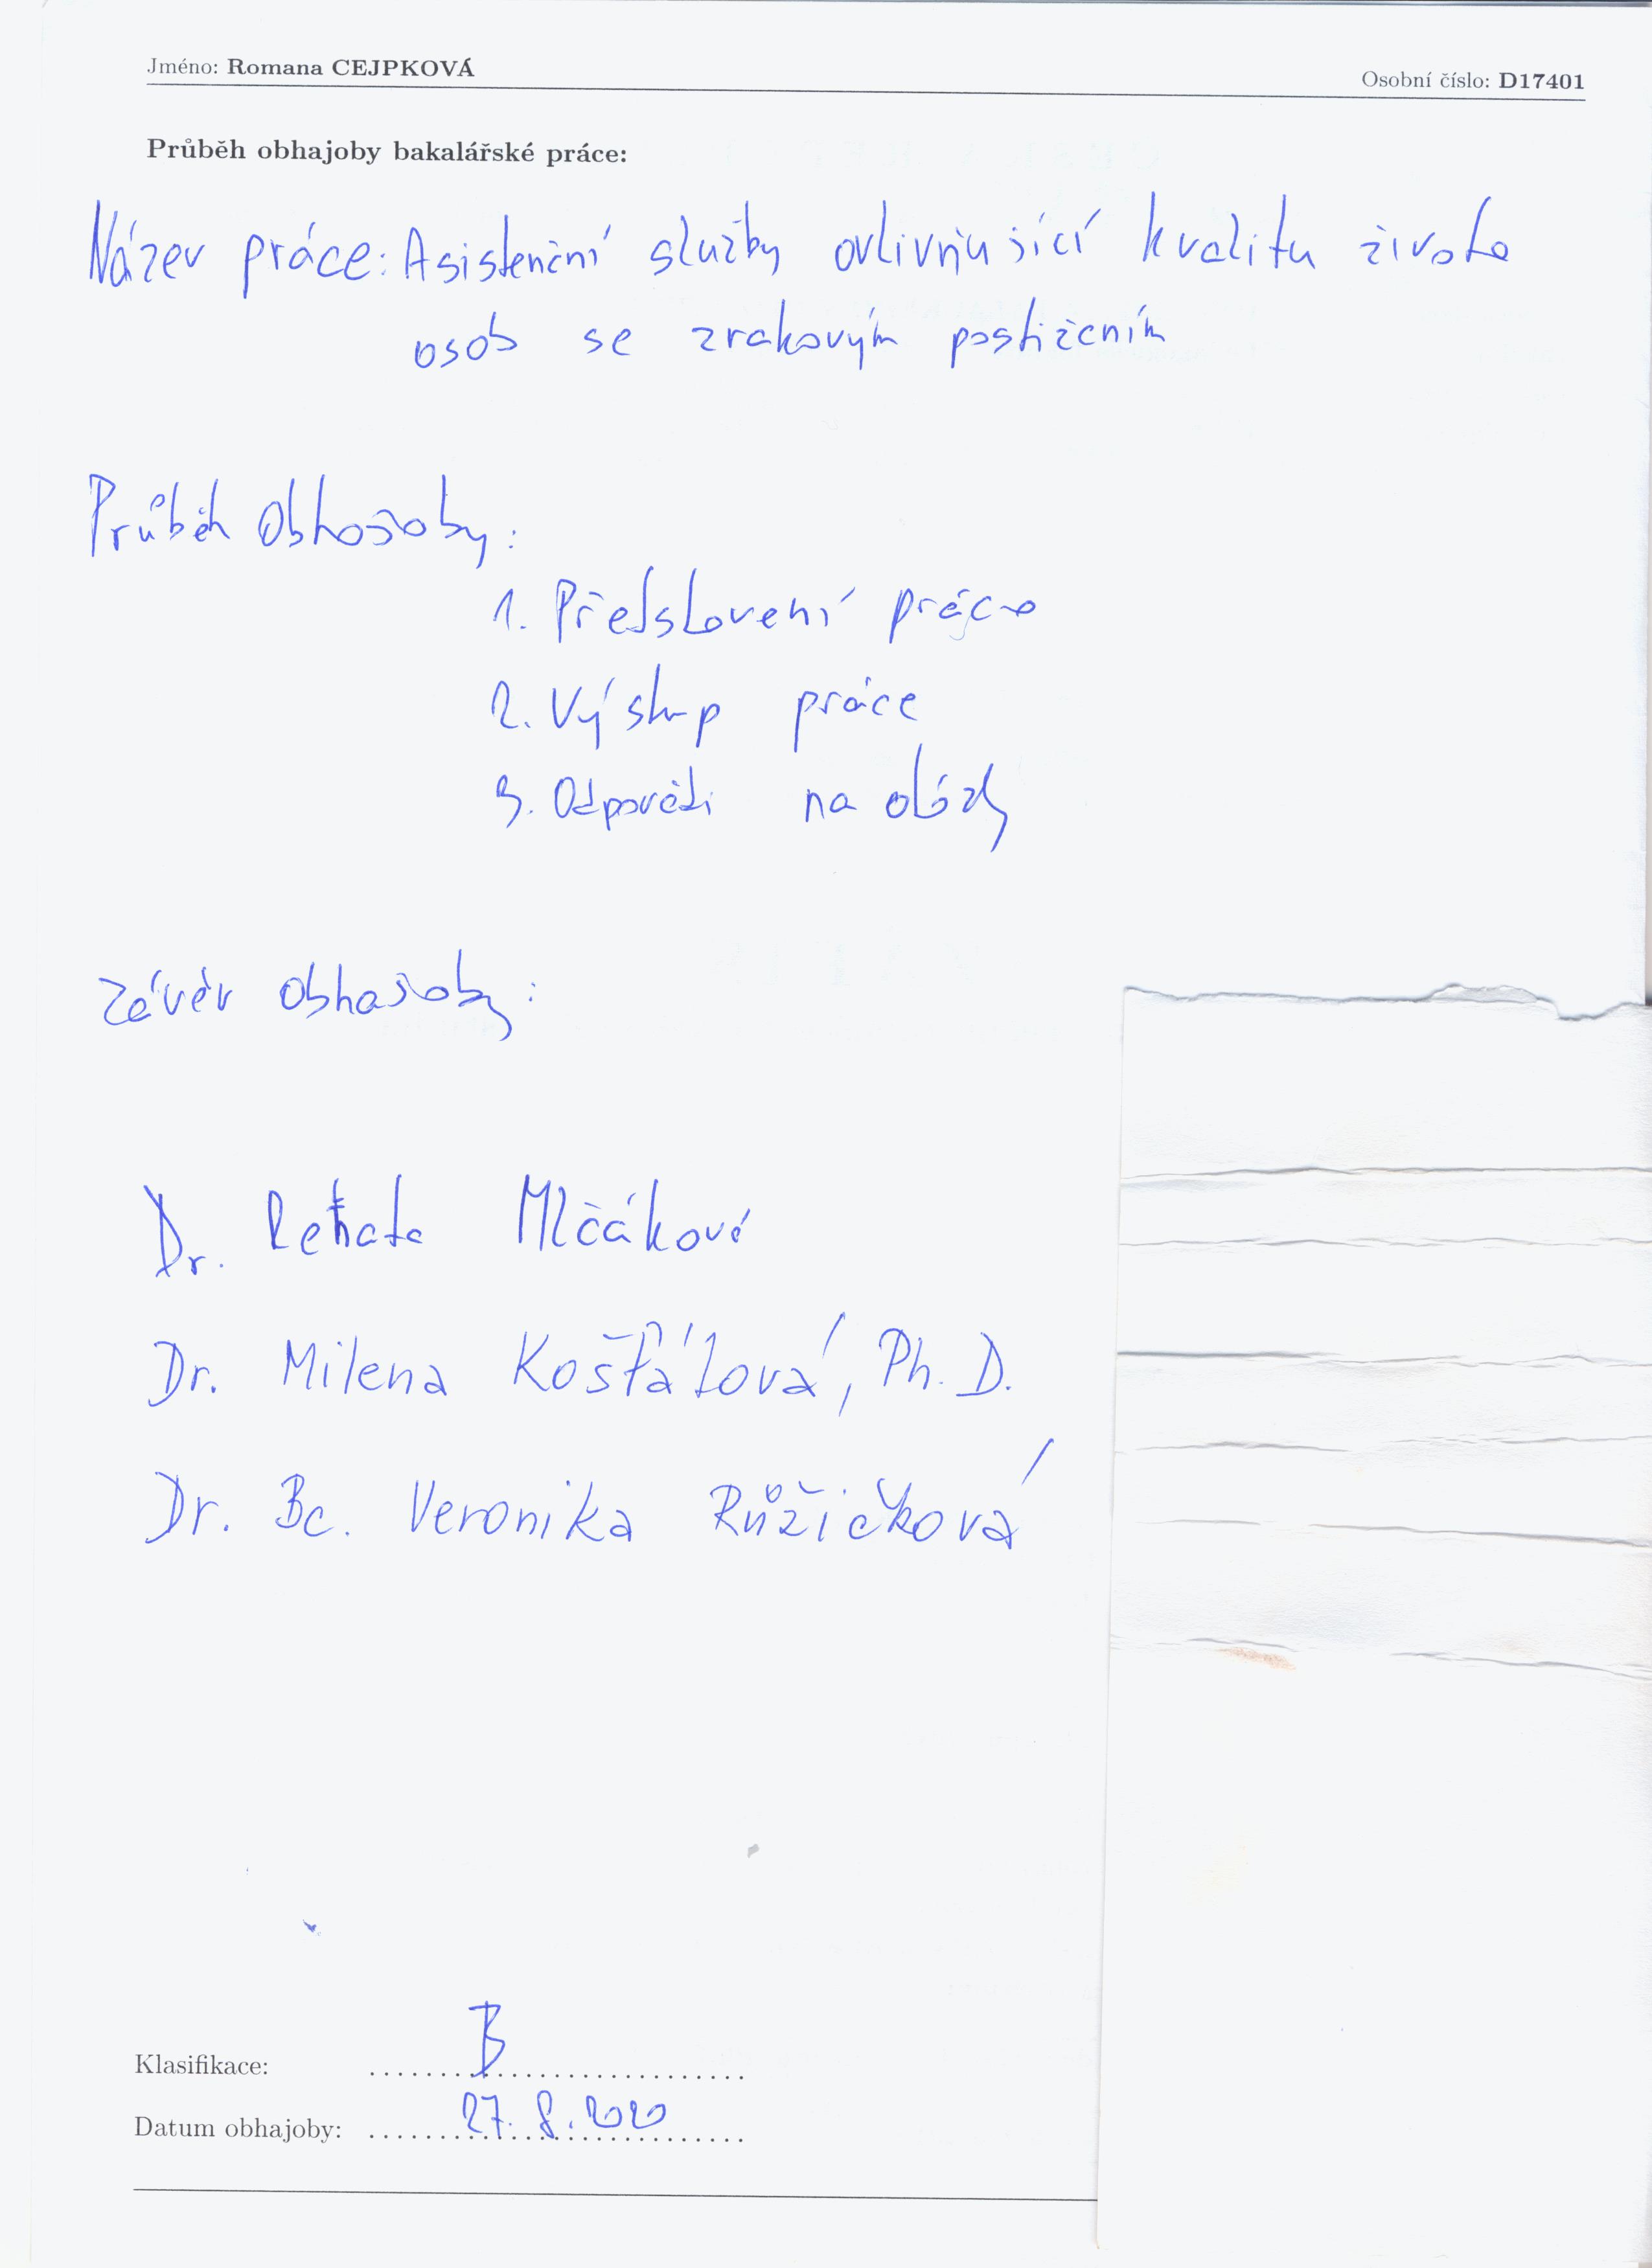 Jméno: Romana CEJPKOVÁ
Osobní číslo: D17401
Průběh obhajoby bakalářské práce:
Název práce: Asistenční služby ovlivňující kvalitu života
osob se zrakovým postižením
Průběh obhajoby:
1. Představení práce
2. Výstup práce
3. Odpovědi na
Závěr obhajoby:
Dr. Renata Mlčáková
Dr. Milena Košťálová, Ph. D.
Dr. Bc. Veronika Růžičková
Klasifikace: B
Datum obhajoby: 27. 8. 2020